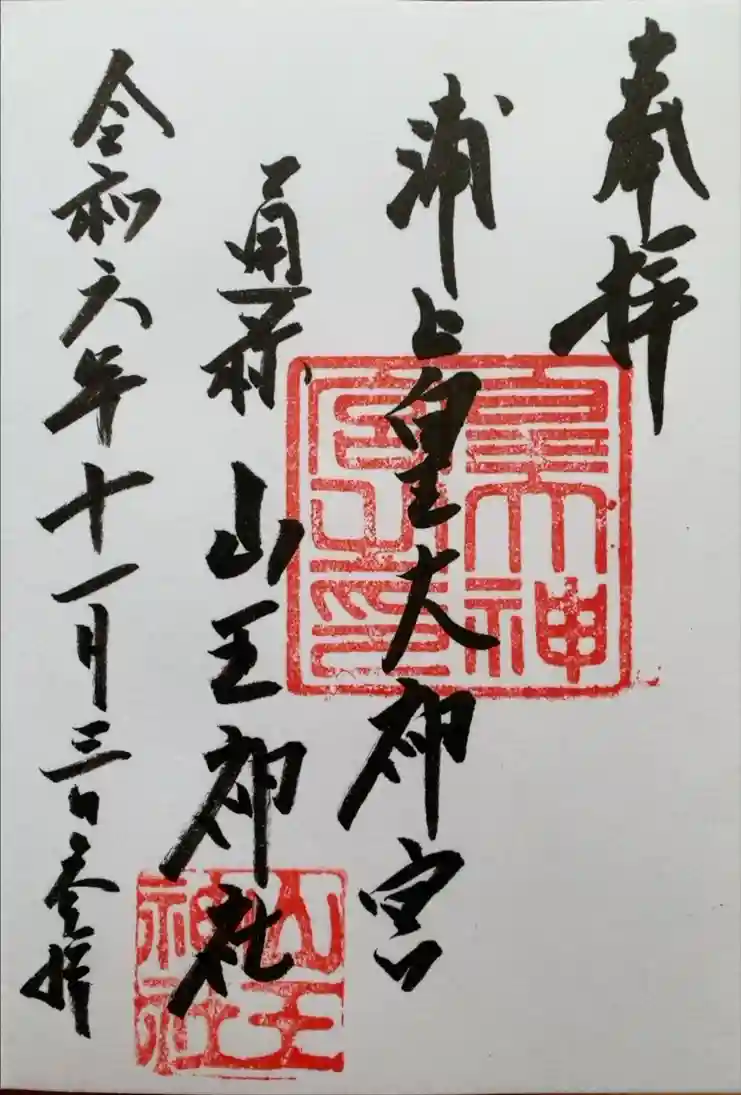 奉拝
浦上皇大神宮
通称 山王神社
令和六年十一月三日参拝
皇大神宮印
山王神社